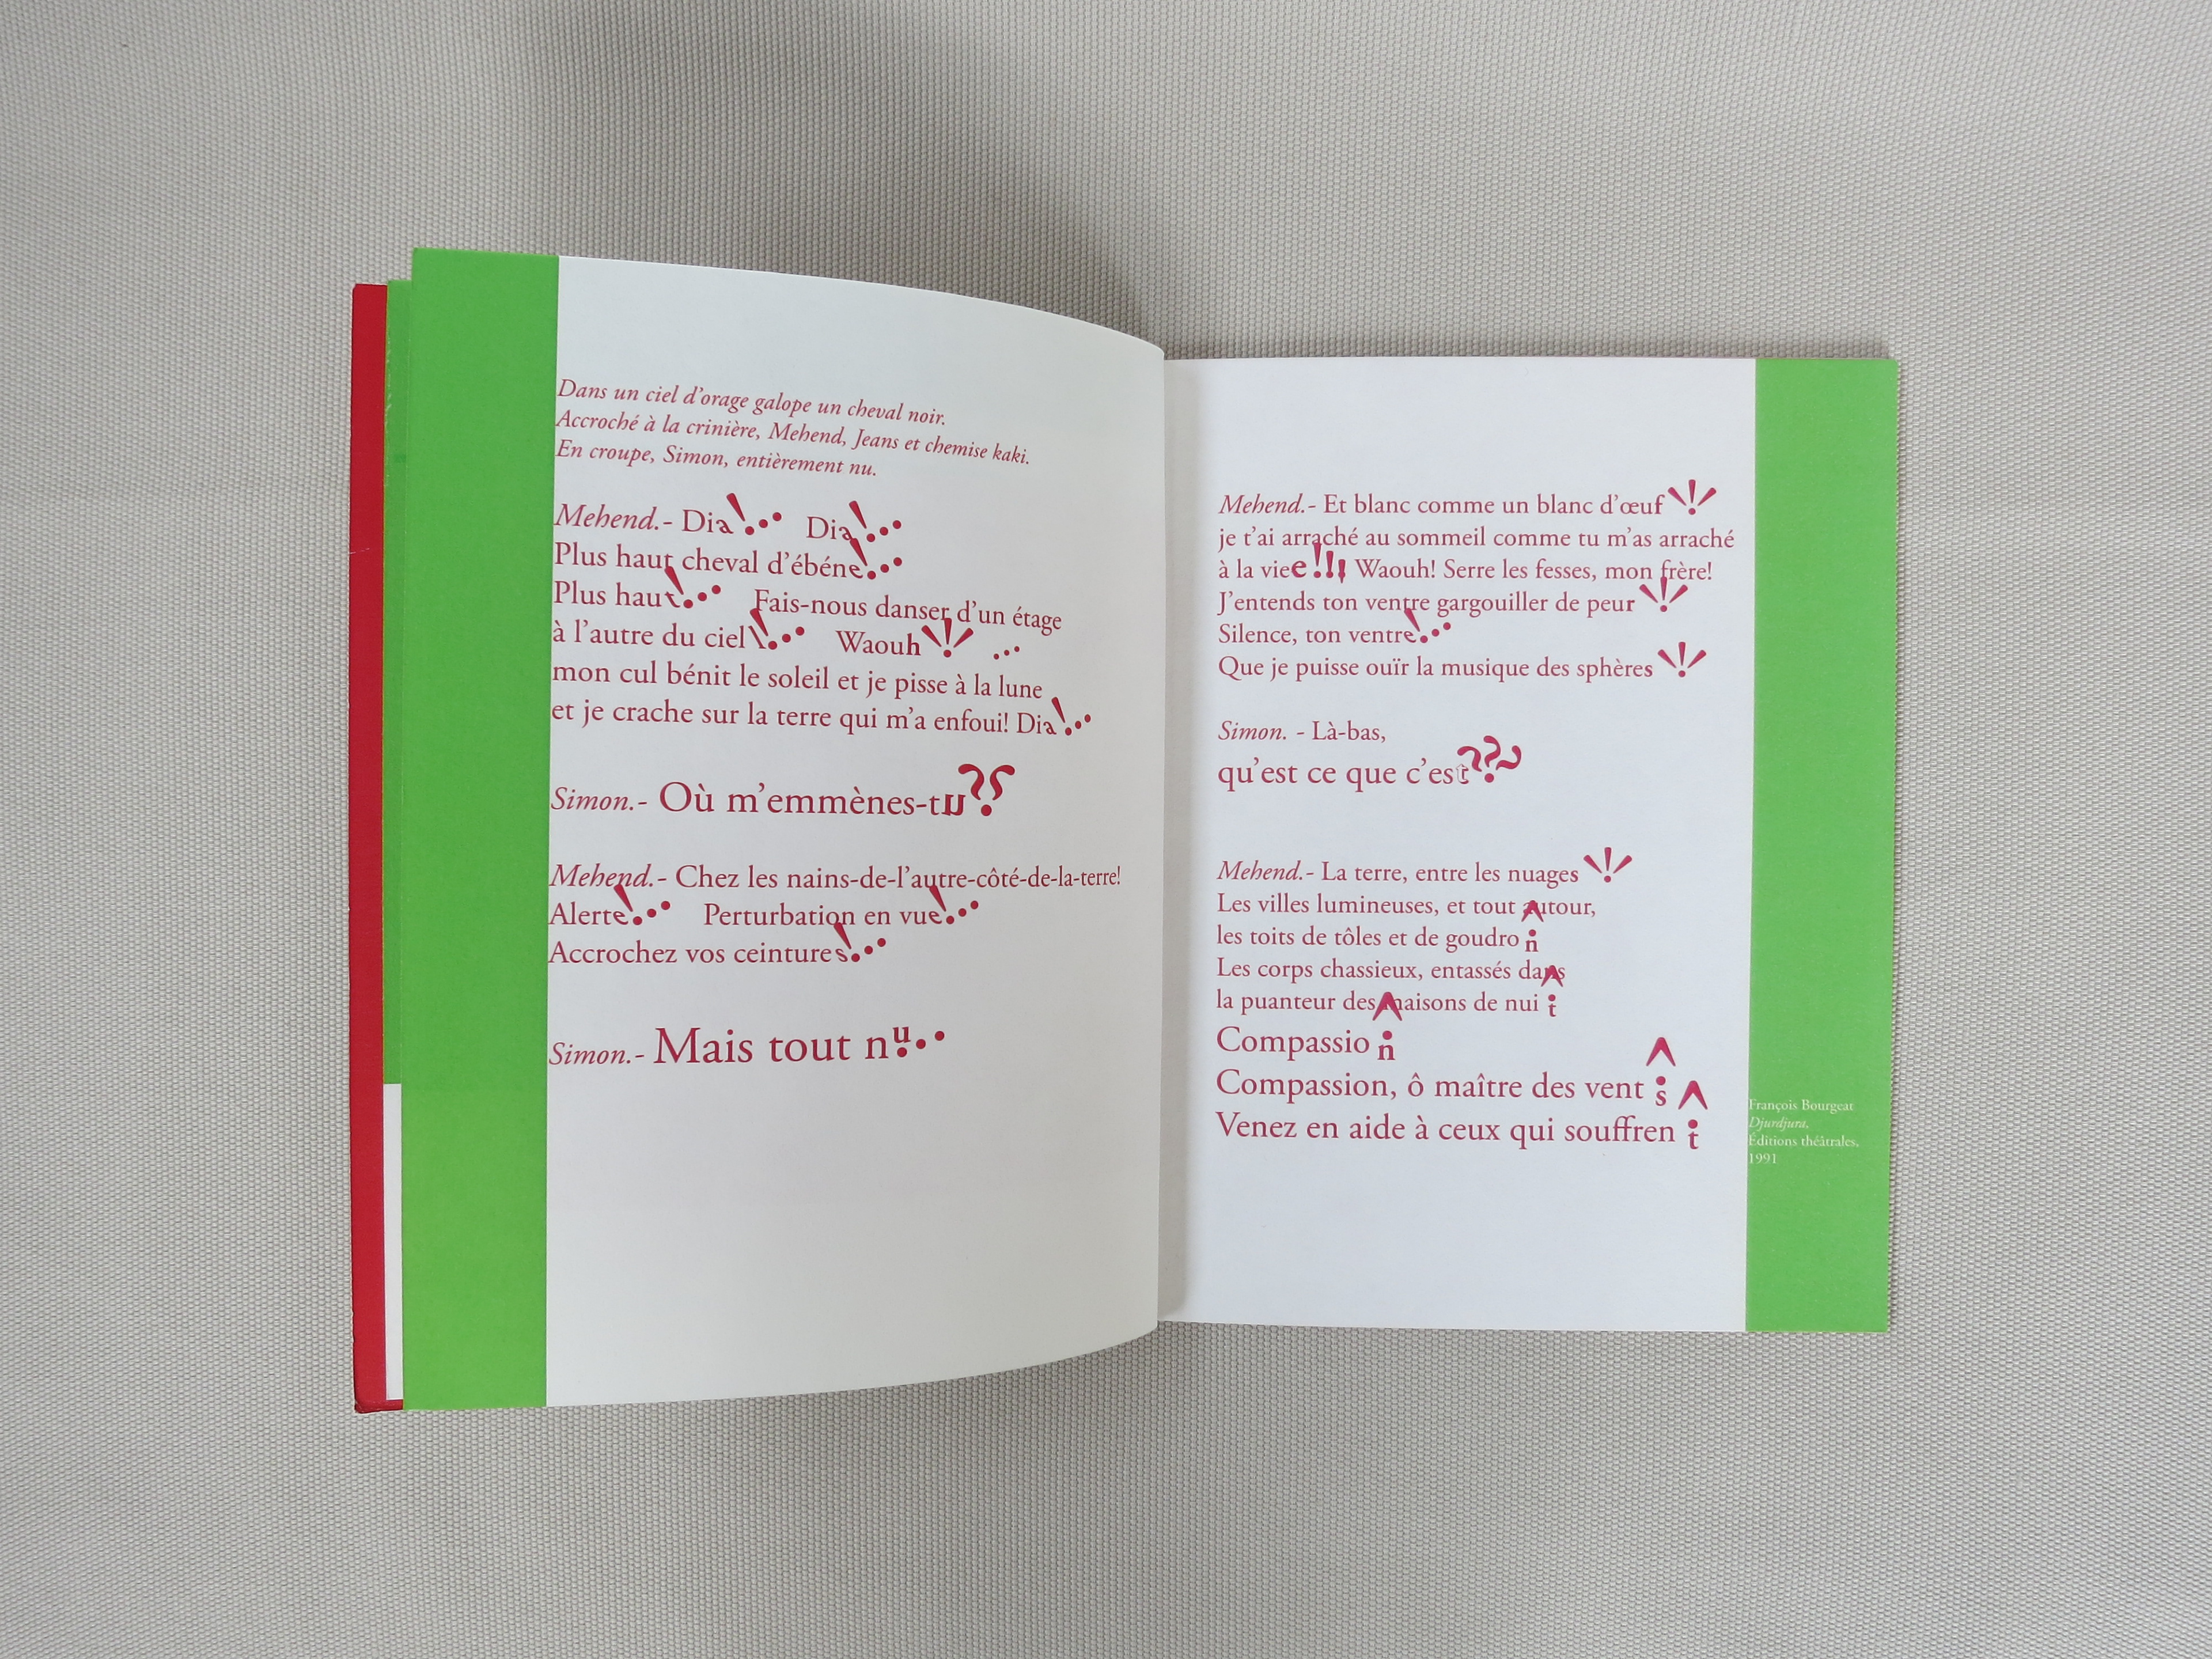 Dans un ciel d'orage galope un cheval noir.
Accroché à la crinière, Mehend, Jeans et chemise kaki.
En croupe, Simon, entièrement nu.
Mehend.- Dia!... Dia!...
Plus haut cheval d'ébéne!...
Plus haut!... Fais-nous danser d'un étage
à l'autre du ciel!... Waouh!!! ...
mon cul bénit le soleil et je pisse à la lune
et je crache sur la terre qui m'a enfoui! Dia!...
Simon.- Où m'emmènes-tu??
Mehend.- Chez les nains-de-l'autre-côté-de-la-terre!
Alerte!... Perturbation en vue!...
Accrochez vos ceintures!...
Simon.- Mais tout nu...
Mehend.- Et blanc comme un blanc d'œuf!!!
je t'ai arraché au sommeil comme tu m'as arraché
à la viee!!! Waouh! Serre les fesses, mon frère!
J'entends ton ventre gargouiller de peur!!!
Silence, ton ventre!...
Que je puisse ouïr la musique des sphères!!!
Simon. - Là-bas,
qu'est ce que c'est???
Mehend.- La terre, entre les nuages!!!
Les villes lumineuses, et tout autour,
les toits de tôles et de goudron
Les corps chassieux, entassés dans
la puanteur des maisons de nuit
Compassion
Compassion, ô maître des vents
Venez en aide à ceux qui souffrent
François Bourgeat
Djurdjura,
Éditions théâtrales,
1991